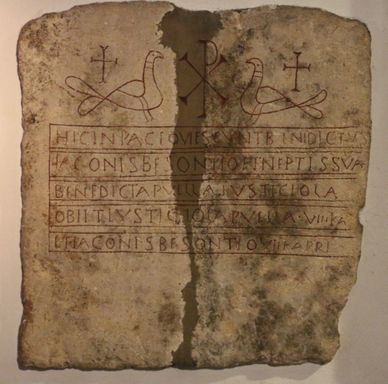 HIC IN PACI QVIESCVNT BENIDICTVS
IACONIS BESONTIO ET NEPTIS SVA
BENEDICTA PVELLA IVSTICIOLA
OBIIT IVSTICIOLA PVELLA · KA
ET IACONIS BESONTIO APRI